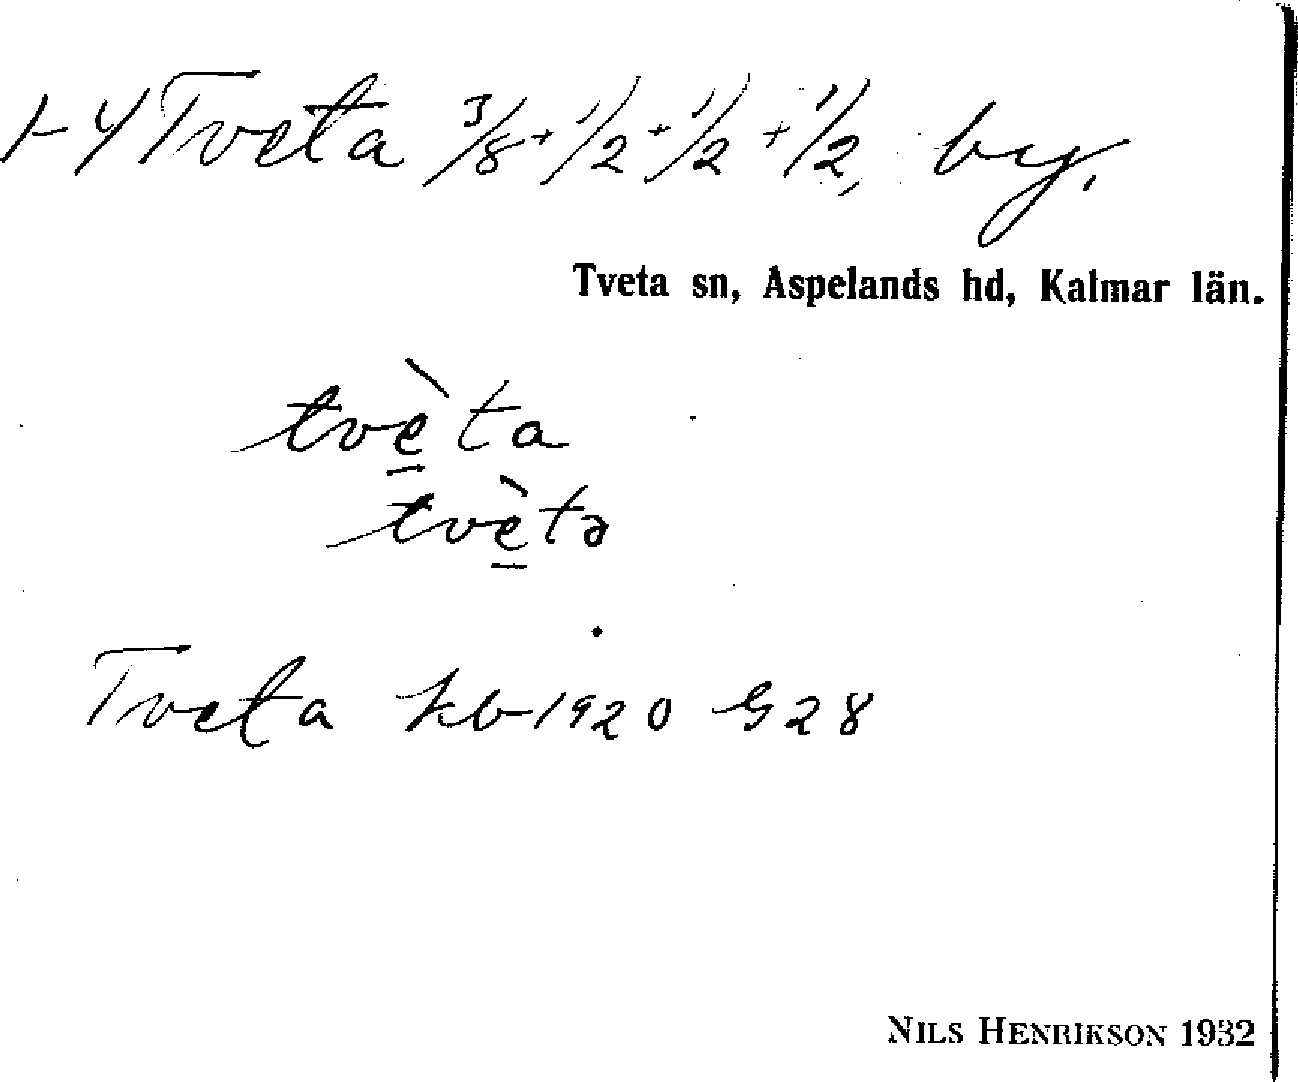 1-4 Tveta 3/8 + 1/2 + 1/2 + 1/2, by.
Tveta sn, Aspelands hd, Kalmar län.
tvè̱ta
tvè̱tə
Tveta kb 1920 S 28
NILS HENRIKSON 1932